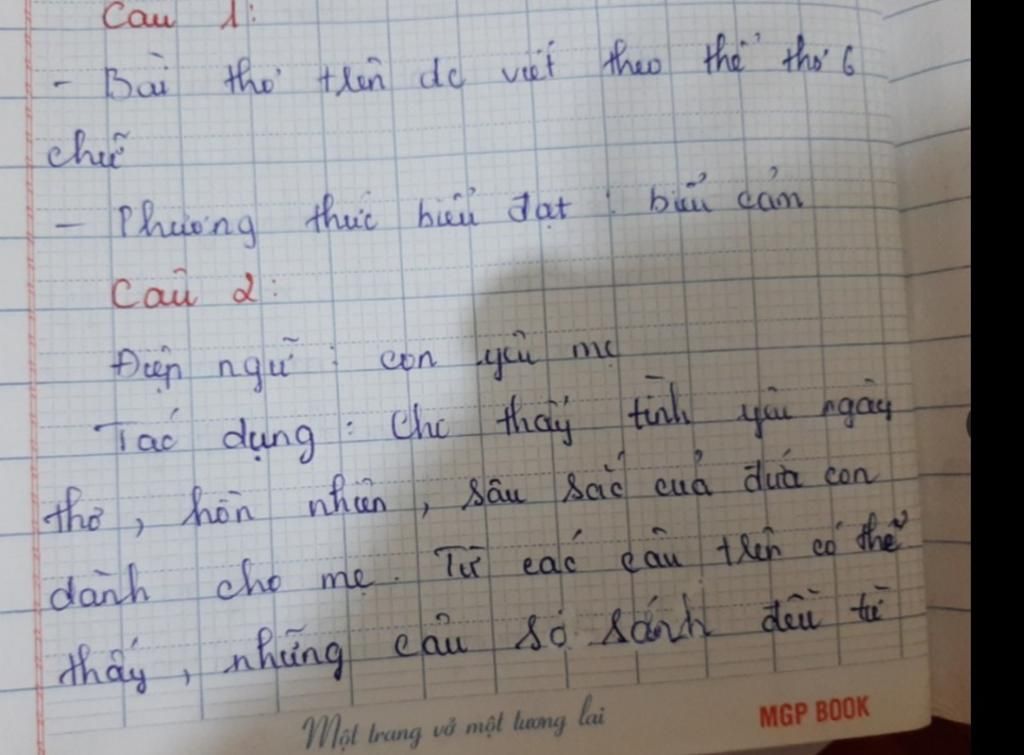 Câu 1:
- Bài thơ trên dc viết theo thể thơ 6
chữ
- Phương thức biểu đạt : biểu cảm
Câu 2:
Điệp ngữ : con yêu mẹ
Tác dụng : Cho thấy tình yêu ngây
thơ, hồn nhiên, sâu sắc của đứa con
dành cho mẹ. Từ các câu trên có thể
thấy, những câu so sánh đều từ
Một trang vở một tương lai
MGP BOOK